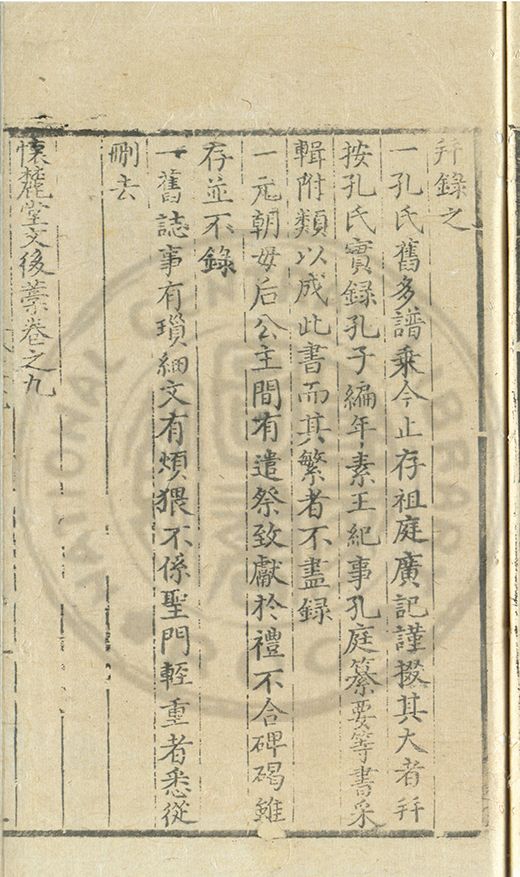 幷錄之
一孔氏舊多譜乘今止存祖庭廣記謹掇其大者幷
按孔氏實錄孔子編年素王紀事孔庭纂要等書采
輯附類以成此書而其繁者不盡録
一元朝母后公主間有遣祭致獻於禮不合碑碣雖
存並不錄
一舊誌事有瑣細文有煩猥不係聖門輕重者悉從
刪去
懷麓堂文後藁卷之九